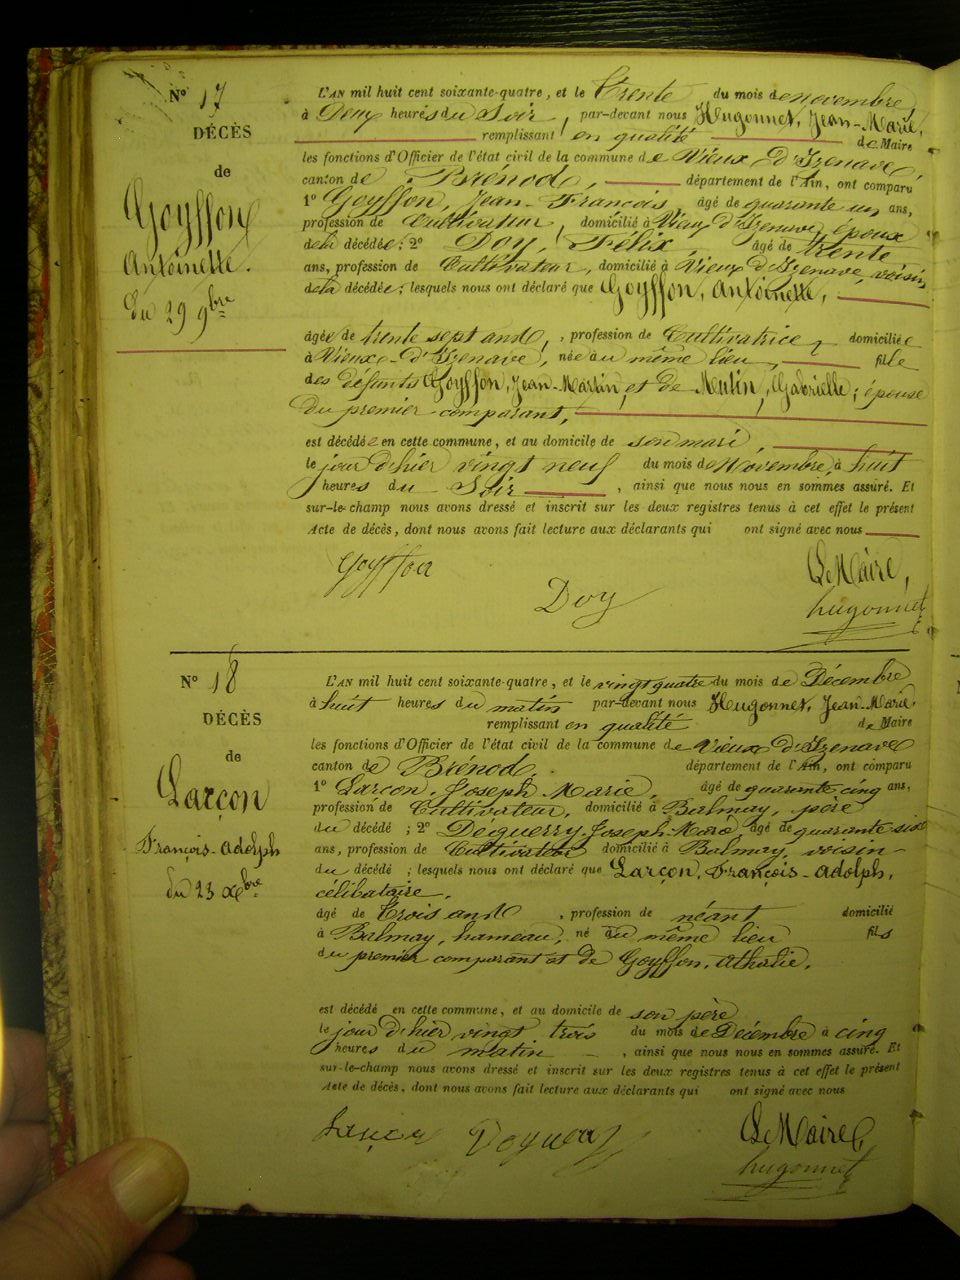 N° 17
DÉCÈS
de
Goyffon
Antoinette.
Du 29 9bre
L'AN mil huit cent soixante-quatre, et le trente du mois de novembre,
à Deux heures du Soir, par-devant nous Hugonnet, Jean-Marie,
remplissant en qualité de Maire
les fonctions d'Officier de l'état civil de la commune de Vieux d'Izenave,
canton de Brénod, département de l'Ain, ont comparu
1° Goyffon, Jean-François, âgé de quarante un ans,
profession de Cultivateur, domicilié à Vieux d'Izenave, époux
de la décédée; 2° Doy, Félix âgé de trente
ans, profession de Cultivateur, domicilié à Vieux d'Izenave, voisin
de la décédée; lesquels nous ont déclaré que Goyffon, Antoinette,
âgée de trente sept ans, profession de Cultivatrice, domiciliée
à Vieux-d'Izenave, née au même lieu, fille
des défunts Goyffon, Jean-Martin, et de Mutin, Gabrielle; épouse
du premier comparant,
est décédée en cette commune, et au domicile de son mari,
le jour d'hier vingt neuf du mois de Novembre, à huit
heures du Soir, ainsi que nous nous en sommes assuré. Et
sur-le-champ nous avons dressé et inscrit sur les deux registres tenus à cet effet le présent
Acte de décès, dont nous avons fait lecture aux déclarants qui ont signé avec nous
Goyffon
Doy
Le Maire,
hugonnet
N° 18
DÉCÈS
de
Larçon
François-Adolph
du 23 Xbre
L'AN mil huit cent soixante-quatre, et le vingt quatre du mois de Décembre
à huit heures du matin par-devant nous Hugonnet, Jean-Marie,
remplissant en qualité de Maire
les fonctions d'Officier de l'état civil de la commune de Vieux d'Izenave
canton de Brénod. département de l'Ain, ont comparu
1° Larçon, Joseph Marie, âgé de quarante cinq ans,
profession de Cultivateur, domicilié à Balmay, père
du décédé; 2° Deguerry Joseph-Marie, âgé de quarante six
ans, profession de Cultivateur domicilié à Balmay, voisin
du décédé; lesquels nous ont déclaré que Larçon, François-Adolph,
célibataire,
âgé de trois ans, profession de néant domicilié
à Balmay, hameau, né au même lieu fils
du premier comparant et de Goyffon, Athalie.
est décédé en cette commune, et au domicile de son père
le jour d'hier vingt trois du mois de Décembre à cinq
heures du matin, ainsi que nous nous en sommes assuré. Et
sur-le-champ nous avons dressé et inscrit sur les deux registres tenus à cet effet le présent
Acte de décès, dont nous avons fait lecture aux déclarants qui ont signé avec nous
Le Maire
hugonnet